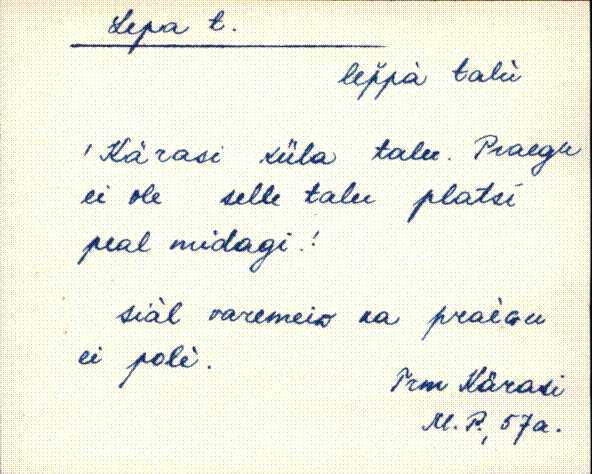 Lepa t.
lep̆pà talù
! Kärasi küla talu. Praegu
ei ole selle talu platsi
peal midagi.!
siàl varemeid ka praègu
ei polè.
Trm Kärasi
M. P., 57a.